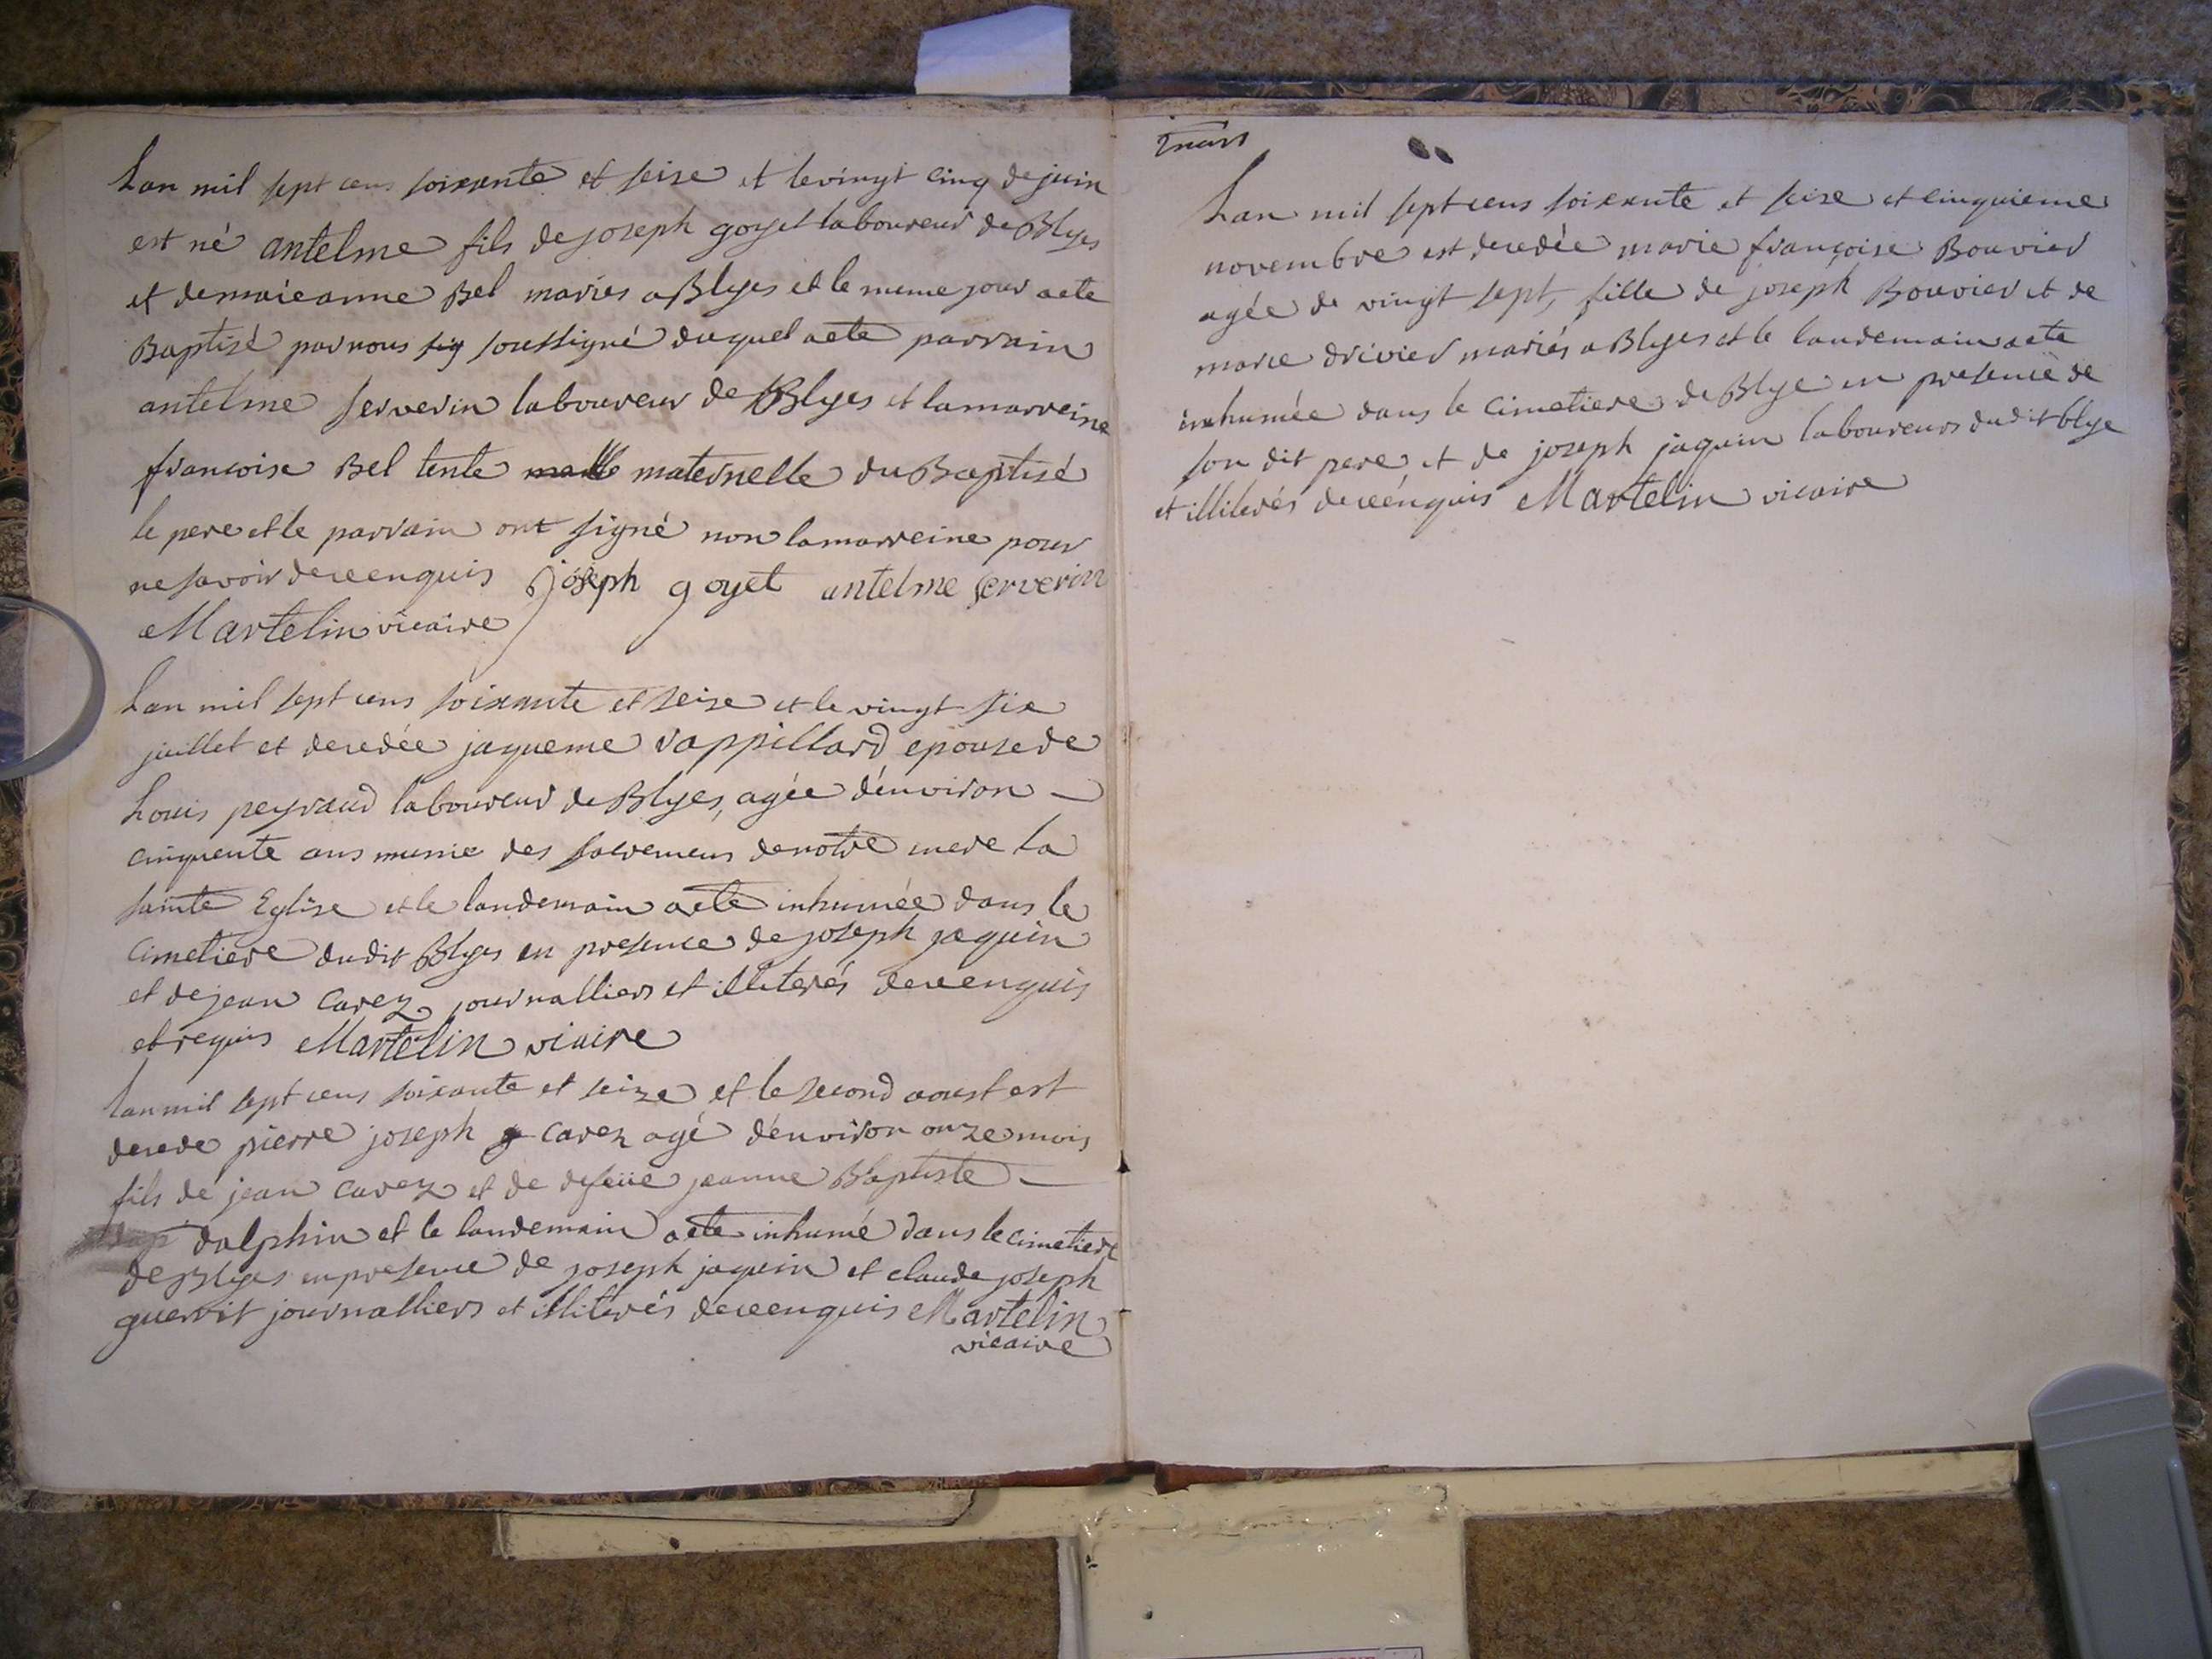 Lan mil sept cens soixante et seise et le vingt cinq de juin
est né antelme fils de joseph goyet laboureur de Blyes
et de maieanne Bel mariés a Blyes et le meme jour aete
Baptisé par nous sig soussigné duquel aete parrain
antelme serverin laboureur de Blyes et la marreine
francoise Bel tente malle maternelle du Baptisé
le pere et le parrain ont signé non la marreine pour
ne savoir de ce enquis joseph goyet antelme serverin
Martelin vicaire
Lan mil sept cens soixante et seise et le vingt six
juillet et decedée jaqueme rappillard epouse de
Louis peyraud laboureur de Blyes, agée d'environ
cinquente ans munie des sacremens de notre mere la
sainte Eglise et le landemain aeté inhumée dans le
cimetiere dudit Blyes en presence de joseph jaquin
et de jean Carez journalliers et illiterés de ce enquis
et requis Martelin viaire
Lan mil sept cens soixante et seize et le second aoust est
decede pierre joseph g Carez agé d'environ onze mois
fils de jean Carez et de defeue jeanne Baptiste
dalphin et le landemain aete inhumé dans le cimetiere
de Blyes en presence de joseph jaquin et claude joseph
guerrit journalliers et illiterés de ce enquis Martelin
vicaire
Lan mil sept cens soixante et seise et cinquieme
novembre est decedée marie françoise Bouvier
agée de vingt sept, fille de joseph Bouvier et de
marie drivier mariés a Blyes et le landemain aete
inhumée dans le cimetiere de Blye en presence de
son dit pere et de joseph jaquin laboureurs dudit blye
et illiterés de ce enquis Martelin vicaire